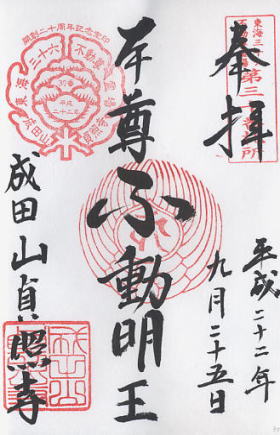 奉拝
第三十
平成二十二年
九月二十五日
本尊不動明王
開創二十周年記念宝印
東海三十六不動尊霊場
平成二十二年
成田山貞照寺